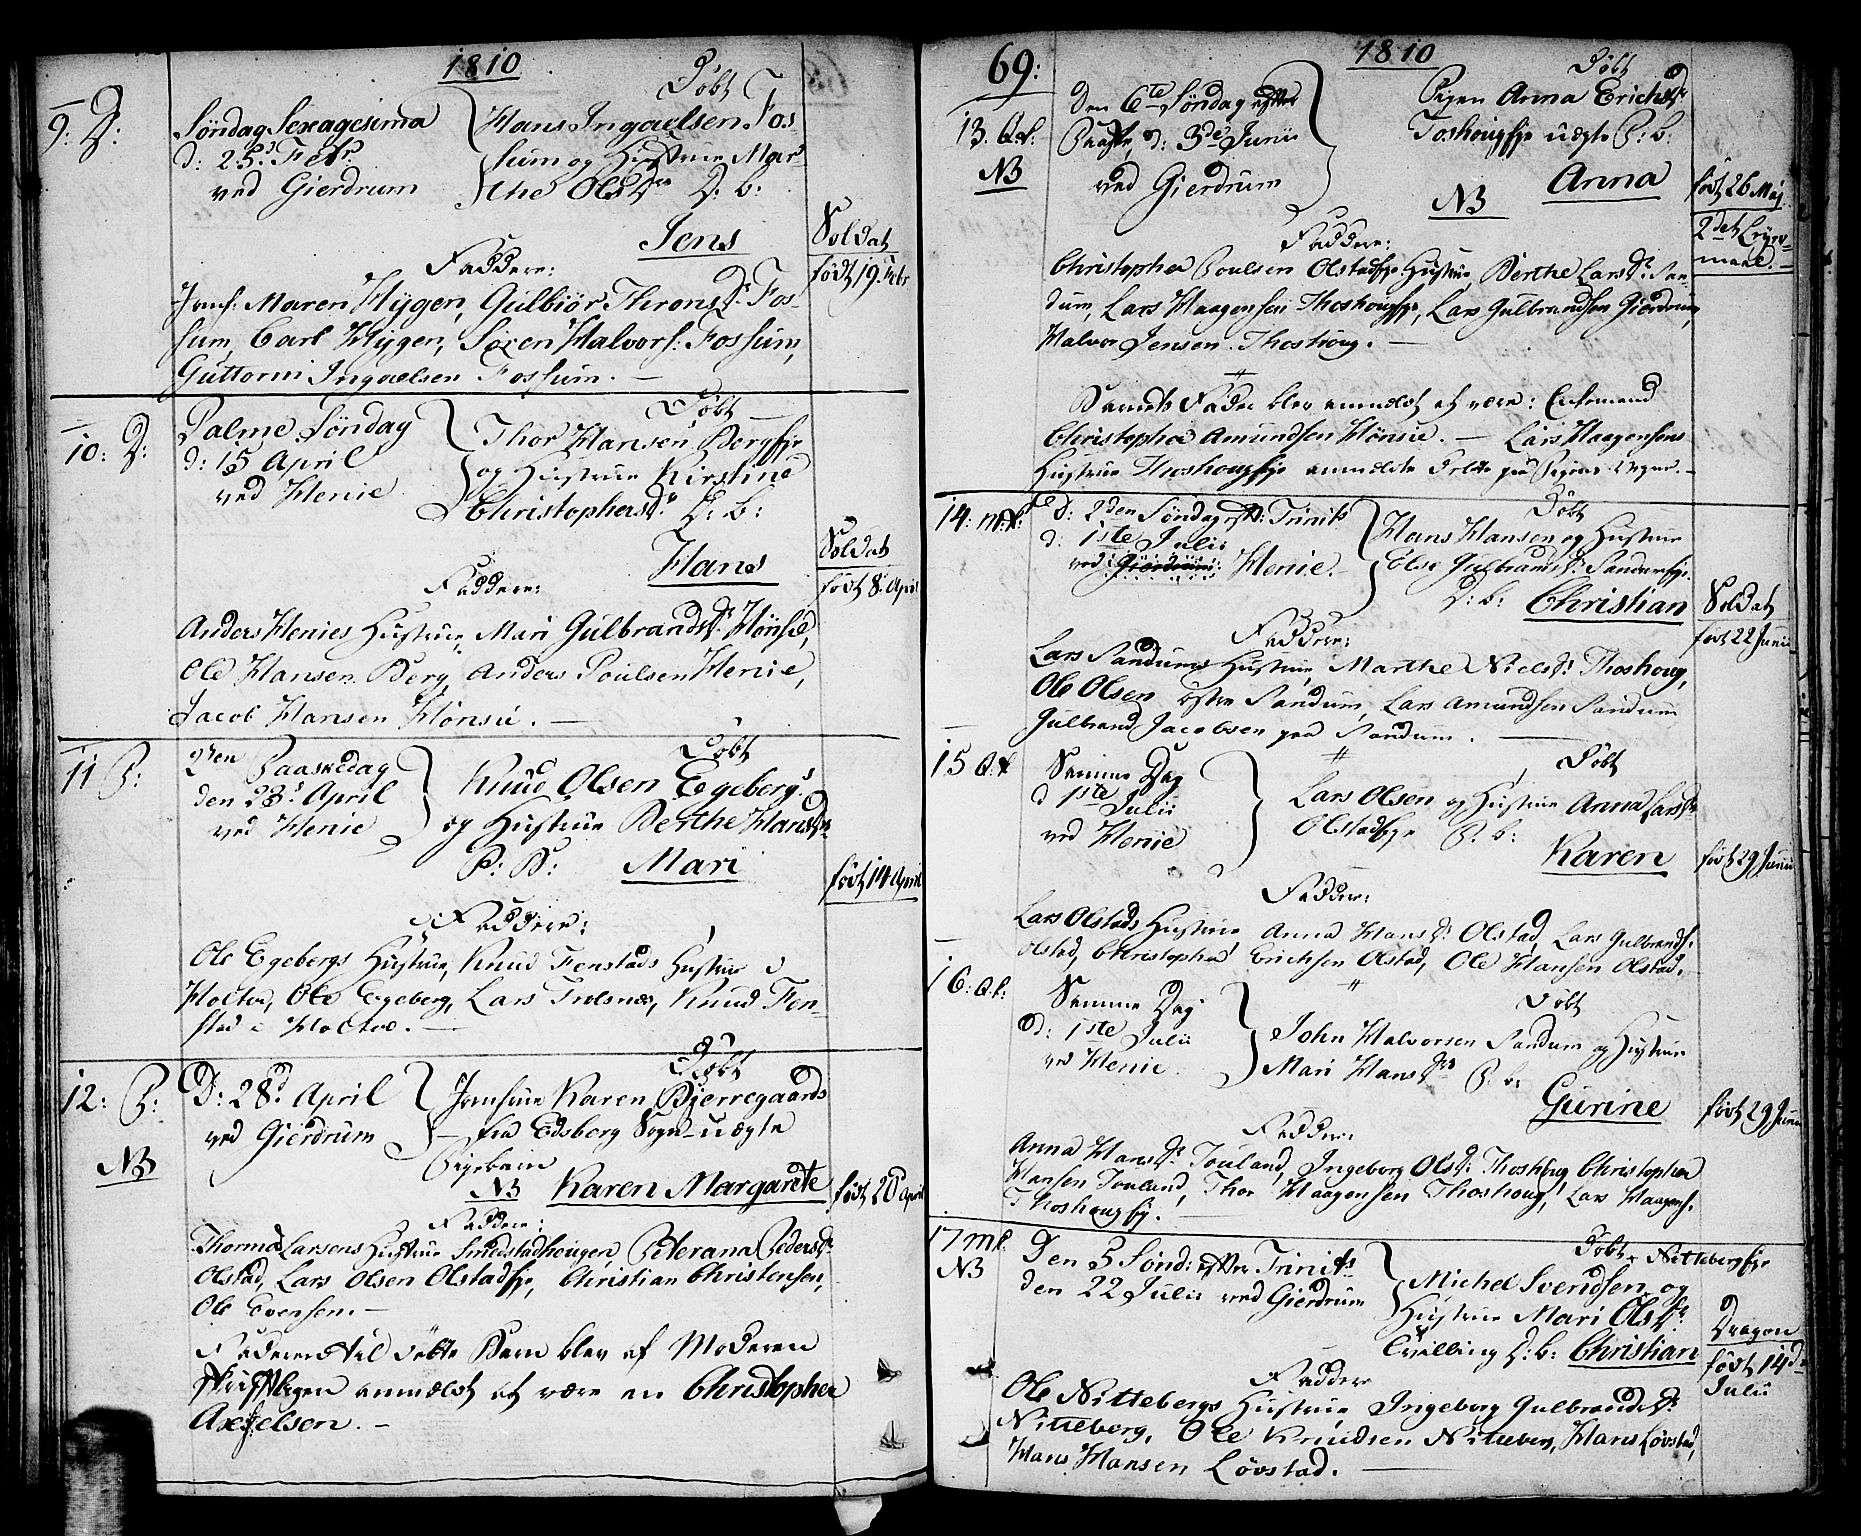 1810
9: D:
Søndag Sexagesima
d: 25d Febr.
ved Gierdrum
Døbt
Hans Ingaelsen Fos-
sum og Hustrue Mar-
the Olsdr D: b:
Jens
Soldat
født 19. Febr
Faddere:
Jomf: Maren Hÿgen, Gulbiør Throndsdr Fos-
sum, Carl Hÿgen, Søren Halvors: Fossum,
Guttorm Ingaelsen Fossum. —
10: D:
Palme Søndag
d: 15 April
ved Henie
Døbt
Thor Hansen Bergeje
og Hustrue Kirstine
Christophersdr D: b:
Hans
Soldat
født 8. April
Faddere:
Anders Henies Hustrue, Mari Gulbrandsdr Hønsie,
Ole Hansen Berg, Anders Poulsen Henie,
Jacob Hansen Hønsie. —
11 P:
2den Paaskedag
den 23d April
ved Henie
Døbt
Knud Olsen Egeberg
og Hustrue Berthe Hansdr
P: B: Mari
født 14 April
Faddere:
Ole Egebergs Hustrue, Knud Fenstads Hustrue i
Holter, Ole Egeberg, Lars Trolsnes, Knud Fen-
stad i Holtoe. —
12: P:
NB
D: 28d April
ved Gierdrum
Døbt
Jomfrue Karen Bjerregaards
— fra Edsberg Sogn — uægte
Pigebarn
NB Karen Margarete
født 20 April
Faddere:
Thomas Larsens Hustrue Smedstadhougen, Peterana Pedersdr
Olstad, Lars Olsen Olstadeje, Christian Christensen,
Ole Evensen. —
Faderen til døbte Barn blev af Moderen
skriftligen anmeldt at være en Christopher
Axelsen. —
69:
1810
13. Q.k.
NB
Den 6te Søndag efter
Paaske, d: 3die Junii
ved Gierdrum
Døbt
Pigen Anna Erichsdr
Toshougeje uægte P: b:
NB Anna
født 26 Maj
2det Leyer-
maal. —
Faddere:
Christopher Poulsen Olstadeje Hustrue Berthe Larsdr San-
dum, Lars Haagensen Thoshougeje, Lars Gulbrandsen Gierdrum,
Halvor Jensen Thoshoug. —
Barnets Fader blev anmeldt at være: Enkemand
Christopher Amundsen Hønsie. — Lars Haagensens
Hustrue Thoshougeje anmeldte dette paa Pigens Vegne. —
14: M.k:
D: 2den Søndag eft: Trinits
d: 1ste Julii
ved Gierdrum Henie.
Døbt
Hans Hansen og Hustrue
Else Gulbrandsdr Sandumeje.
D: b: Christian
Soldat
født 22 Junii
Faddere:
Lars Sandums Hustrue, Marthe Nielsdr Thoshoug,
Ole Olsen østre Sandum, Lars Amundsen Sandum
Gulbrand Jacobsen paa Sandum. —
15 Q:k
Samme Dag
d 1ste Julii
ved Henie
Døbt
Lars Olsen og Hustrue Anna Larsdr
Olstadeje P: b:
Karen
født 29 Junii
Faddere:
Lars Olstads Hustrue Anna Hansdr Olstad, Lars Gulbrands:
Olstad, Christopher Erichsen Olstad, Ole Hansen Olstad.
16: Q.k:
Samme Dag
d: 1ste Julii
ved Henie.
Døbt
John Halvorsen Sandum og Hustrue
Mari Hansdr P: b:
Gurine
født 29 Junii
Faddere:
Anna Hansdr Jouland, Ingeborg Olsdr Thoshoug Christopher
Hansen Jouland, Thor Haagensen Thoshoug, Lars Haagens.
Thoshougej.
17 M.k.
NB
Den 5 Sønd: efter Trinits
den 22 Julii ved Gierdrum
Døbt Nittebergeje
Michel Svendsen og
Hustrue Mari Olsdr
Tvilling D: b: Christian
Dragon
født 14d
Julii
Faddere
Ole Nittebergs Hustrue Ingeborg Gulbrandsdr
Nitteberg, Ole Knudsen Nitteberg, Hans Løvstad,
Hans Hansen Løvstad. —